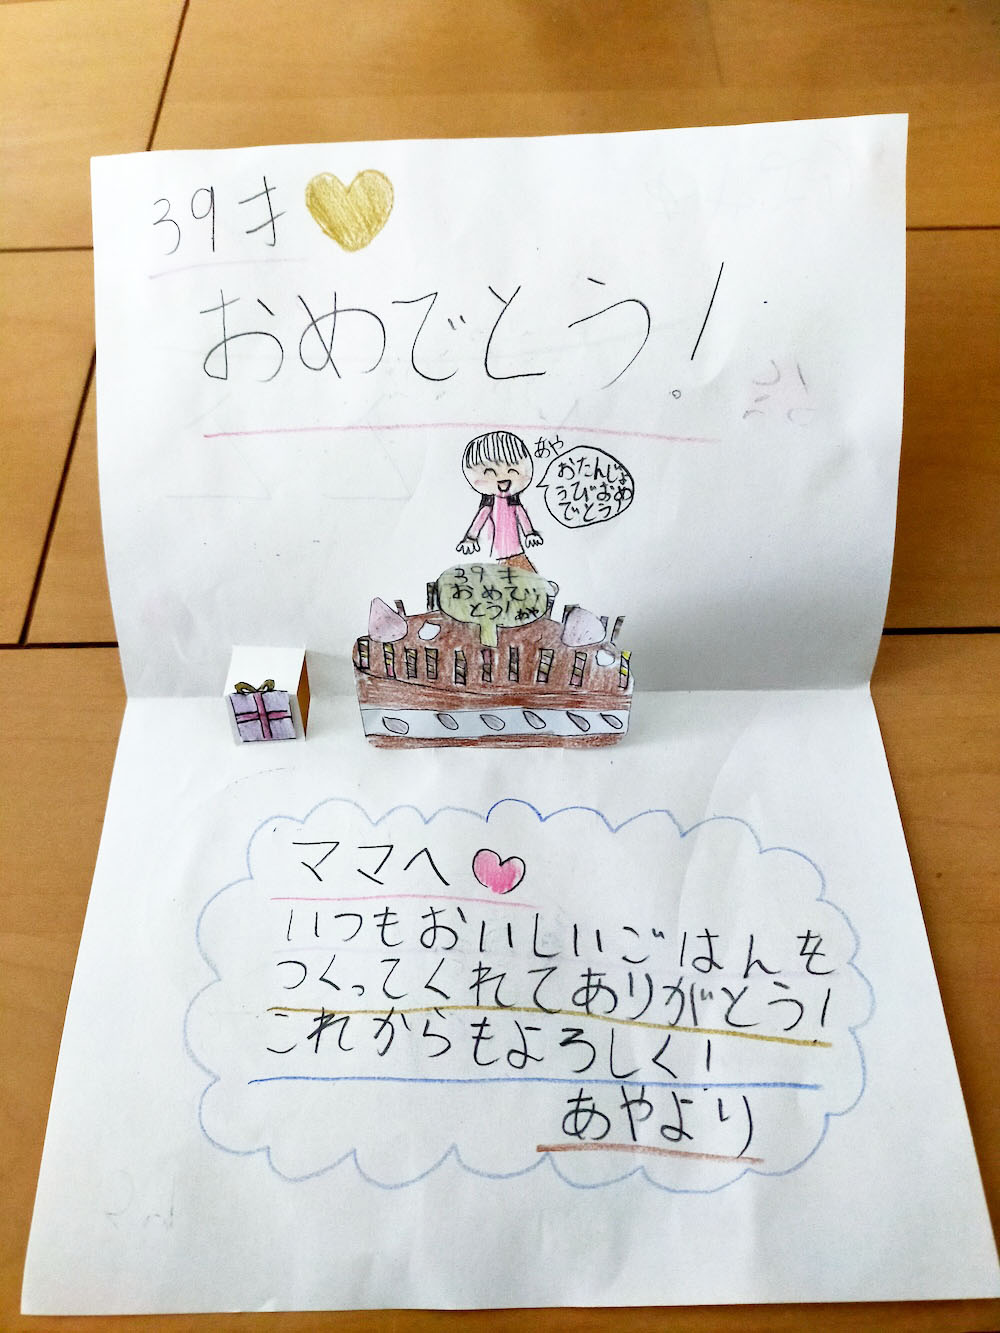 39才
おめでとう！
あや
おたんじょ
うびおめ
でとう！
39才
おめで
とう！あや
ママへ
いつもおいしいごはんを
つくってくれてありがとう！
これからもよろしく！
あやより